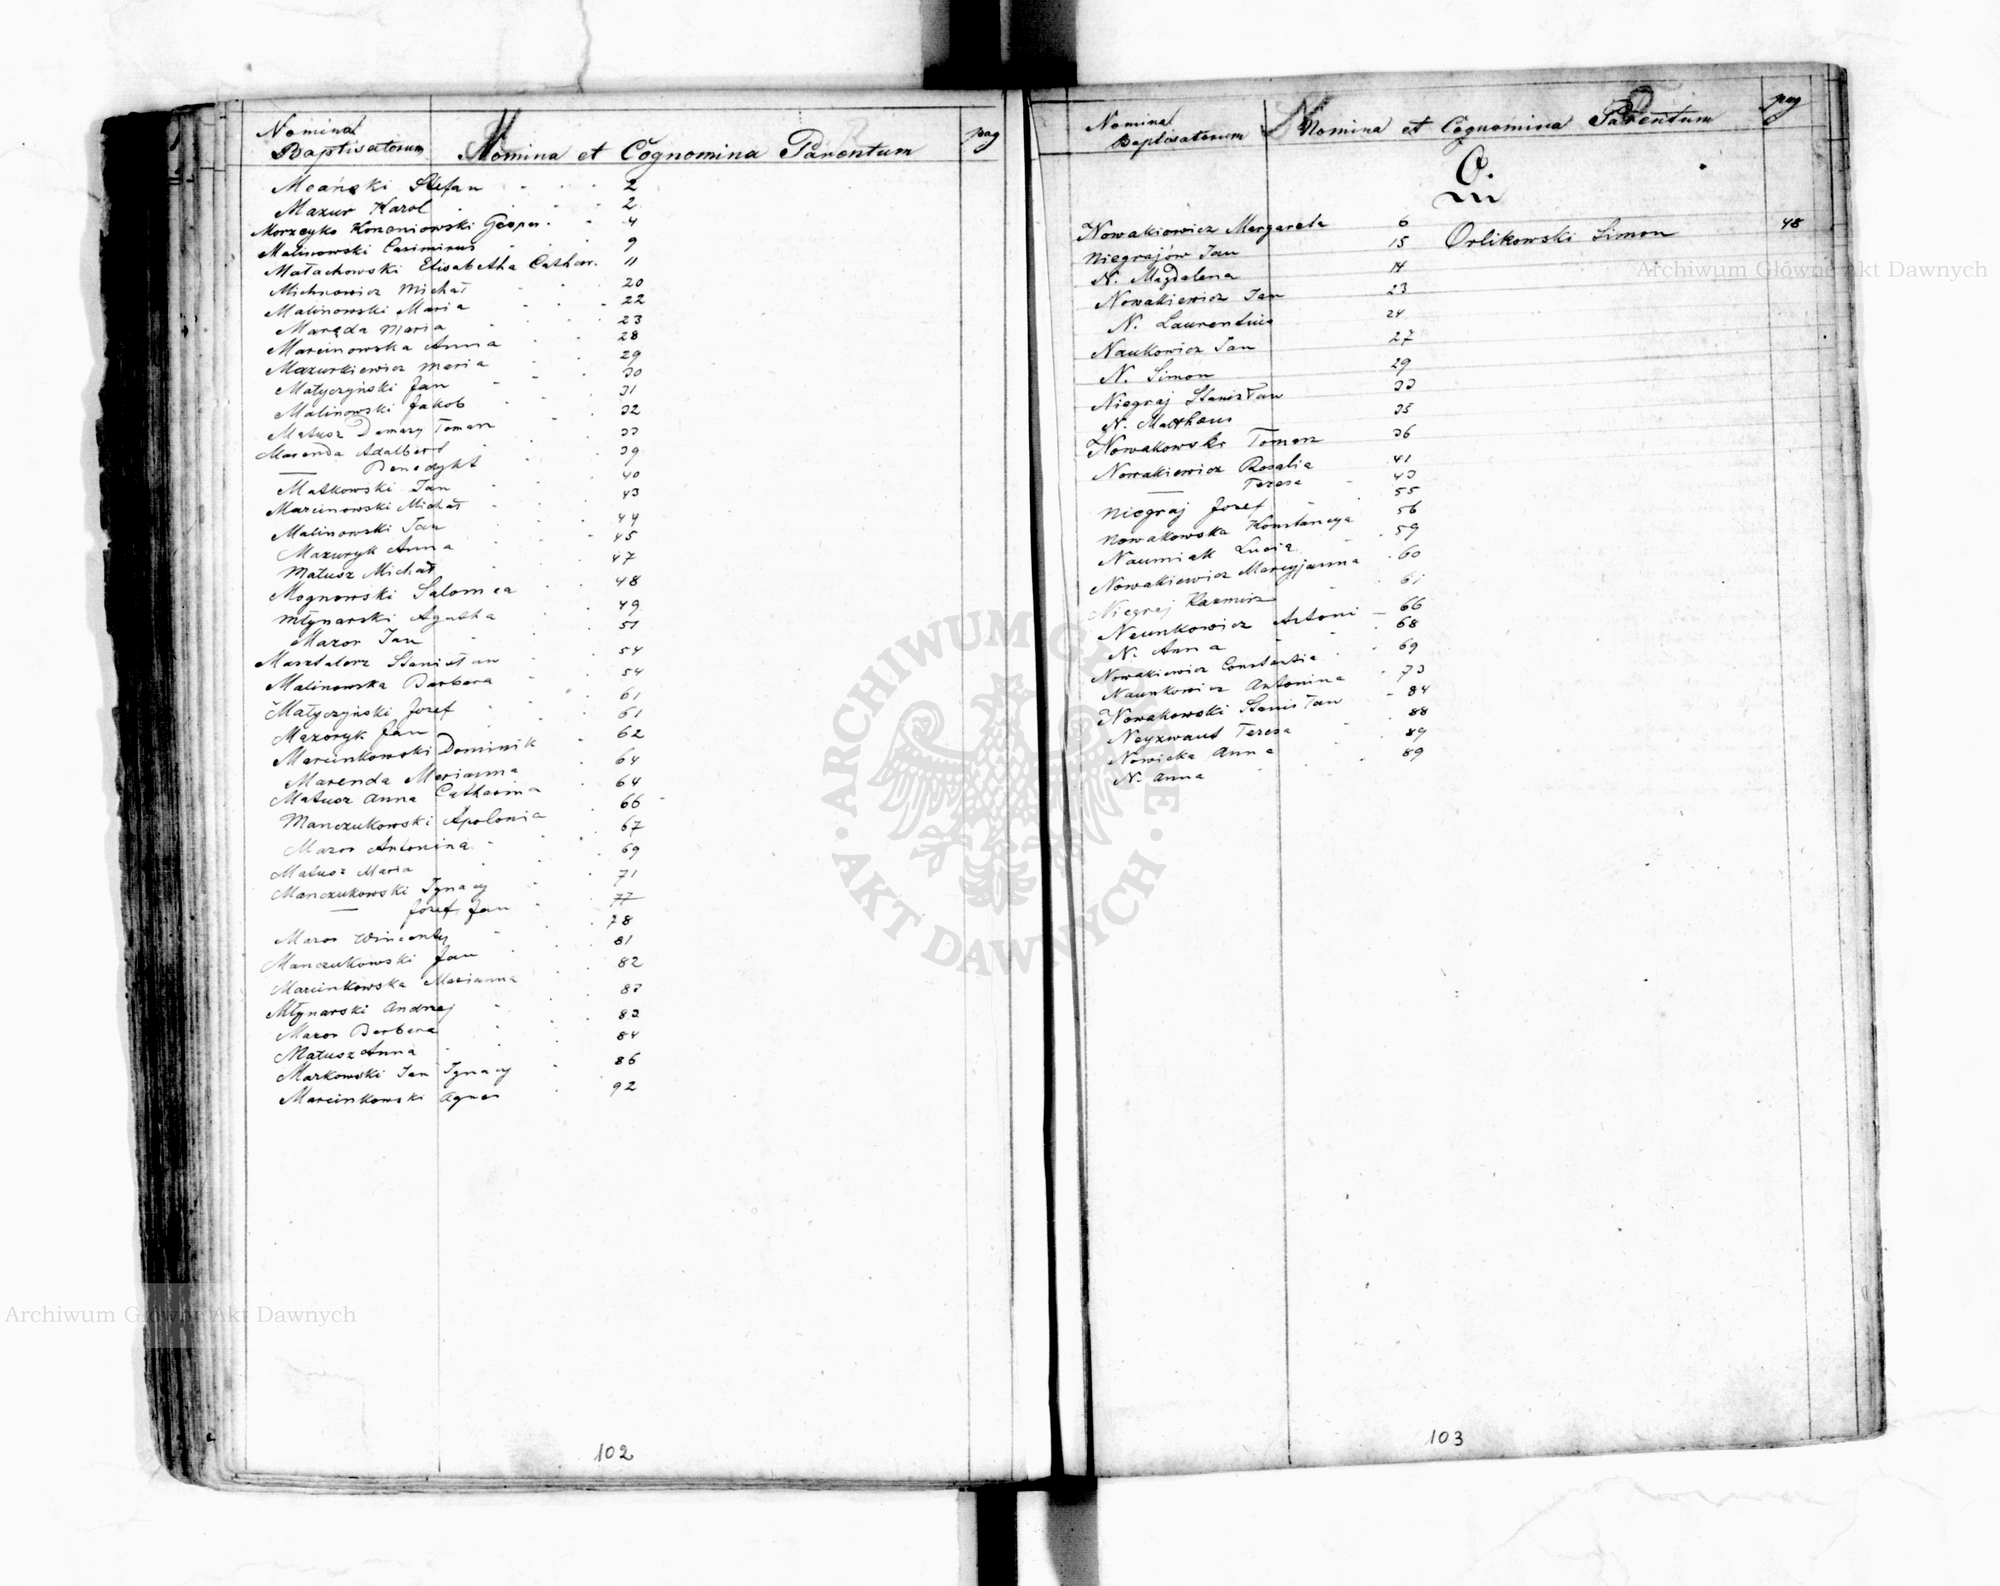 Nomina
Baptisatorum
M
Nomina et Cognomina Parentum
pag
Mcański Stefan 2
Mazur Karol 2
Morzcyko Kononiowski Gasper 4
Malinowski Casimirus 9
Małachowski Elisabetha Cathar. 11
Michnowicz Michał 20
Malinowski Maria 22
Maręda Maria 23
Marcinowska Anna 28
Mazurkiewicz Maria 29
Małyczyński Jan 30
Malinowski Jakob 31
Matusz Damazy Tomasz 32
Marenda Adalbert 33
— Benedykt 39
Matkowski Jan 40
Marcinowski Michał 43
Malinowski Jan 44
Mazuryk Anna 45
Matusz Michał 47
Mognowski Salomea 48
Młynarski Agatha 49
Mazor Jan 51
Masztalerz Stanisław 54
Malinowska Barbara 54
Małyczyński Josef 61
Mazoryk Jan 61
Marcinkowski Dominik 62
Marenda Marianna 64
Matusz Anna Catharina 64
Manczukowski Apolonia 66
Mazor Antonina 67
Matusz Maria 69
Manczukowski Ignacy 71
— Josef, Jan 77
Mazor Wincenty 78
Manczukowski Jan 81
Marcinkowska Marianna 82
Młynarski Andrzej 83
Mazor Barbara 83
Matusz Anna 84
Markowski Jan Ignacy 86
Marcinkowski Agnes 92
102
Nomina
Baptisatorum
N
Nomina et Cognomina Parentum
pag
O.
Nowakiewicz Margareta 6
Orlikowski Simon 48
Niegrajów Jan 15
N. Magdalena 14
Nowakiewicz Jan 23
N. Laurentius 24
Naukowicz Jan 27
N. Simon 29
Niegraj Stanisław 33
N. Mathaeus 35
Nowakowski Tomasz 36
Nowakiewicz Rosalia 41
— Teresa 43
Niegraj Josef 55
Nowakowska Konstancya 56
Naumiak Lucia 59
Nowakiewicz Maryjanna 60
Niegraj Kazmirz 61
Naunkowicz Antoni — 66
N. Anna 68
Nowakiewicz Constantia 69
Naunkowicz Antonina 73
Nowakowski Stanisław 84
Neyzwaut Teresa 88
Nowicka Anna 89
N. Anna 89
103
Archiwum Główne Akt Dawnych
Archiwum Główne Akt Dawnych
ARCHIWUM GŁÓWNE · AKT DAWNYCH ·